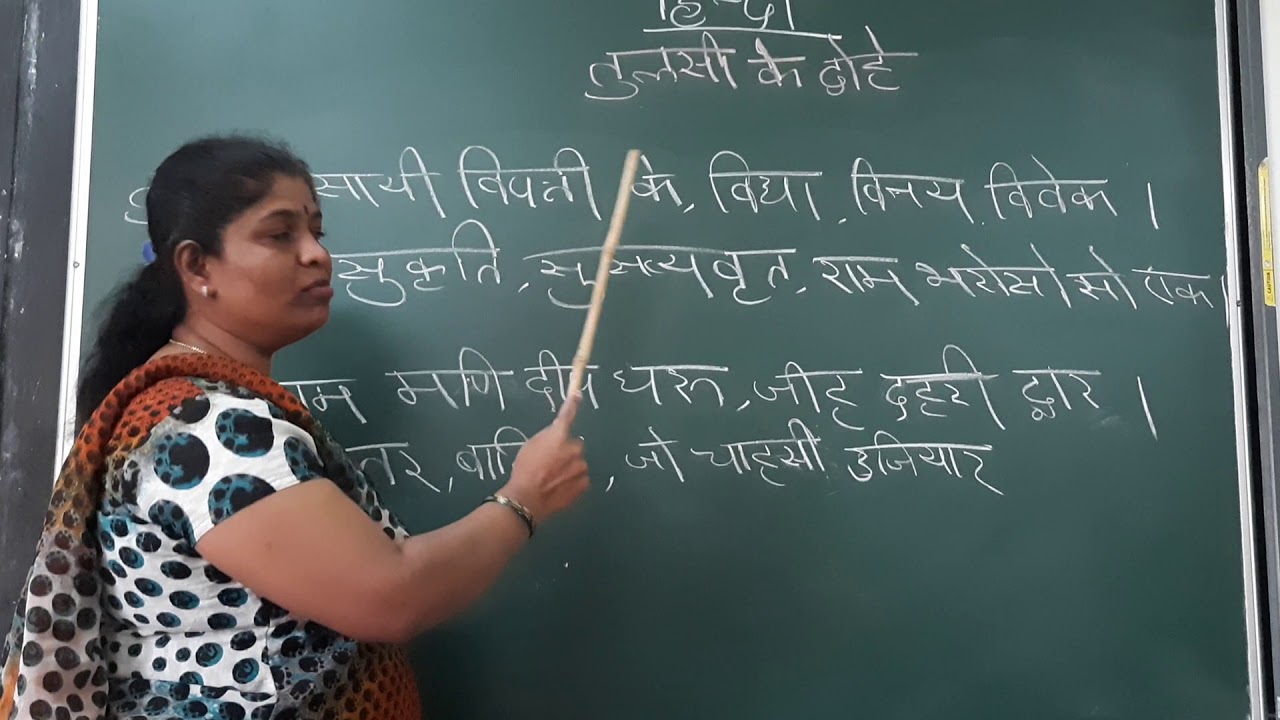 हिन्दी
तुलसी के दोहे
सायी विपत्ती के, विद्या, विनय, विवेक ।
सुकृति, सुसत्यवृत, राम भरोसो सो एक ।
मणि दीप धरू, जीह दहरी द्वार ।
जो चाहसी उजियार